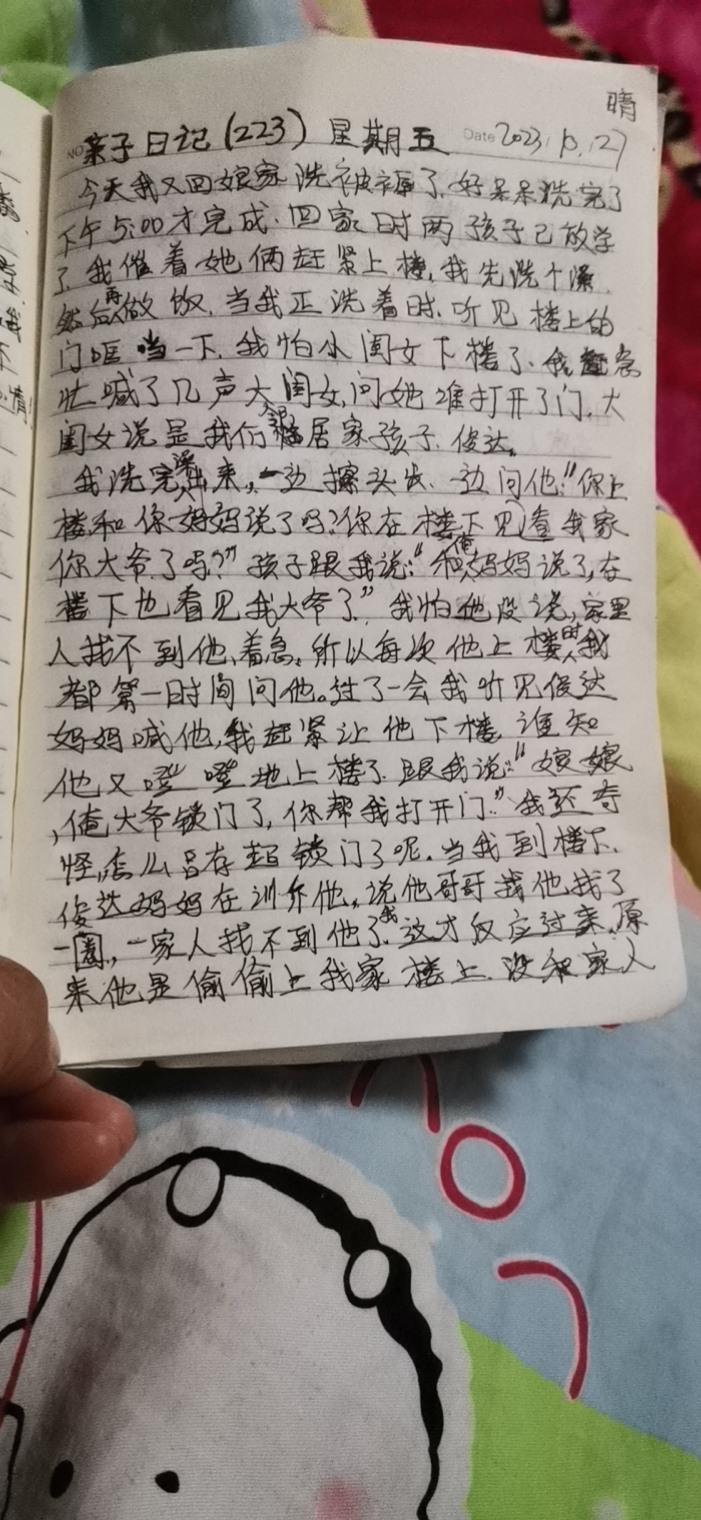 晴
亲子日记(223) 星期五 Date 2023.10.27
今天我又回娘家洗被褥了.好呆呆洗完了
下午5:00才完成.回家时两孩子已放学
了.我催着她俩赶紧上楼,我先洗个澡.
然后再做饭.当我正洗着时.听见楼上的
门哐当一下.我怕小闺女下楼了.我急
忙喊了几声大闺女,问她谁打开了门.大
闺女说是我们邻居家孩子.俊达。
我洗完澡出来,一边擦头发.一边问他:“你上
楼和你妈妈说了吗?你在楼下见着我家
你大爷了吗?”孩子跟我说:“和俺妈妈说了,在
楼下也看见我大爷了.”我怕他没说,家里
人找不到他,着急。所以每次他上楼时,我
都第一时间问他。过了一会我听见俊达
妈妈喊他,我赶紧让他下楼.谁知
他又噔噔地上楼了.跟我说:“娘娘
,俺大爷锁门了,你帮我打开门.”我还奇
怪,怎么吕存超锁门了呢.当我到楼下.
俊达妈妈在训斥他,说他哥哥找他找了
一圈,一家人找不到他了.我这才反应过来,原
来他是偷偷上我家楼上.没和家人